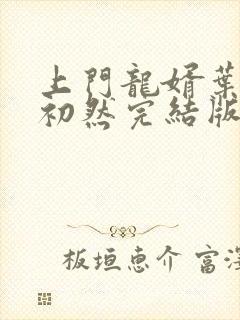 上門龍婿葉
初然完結版
板垣恵介 富